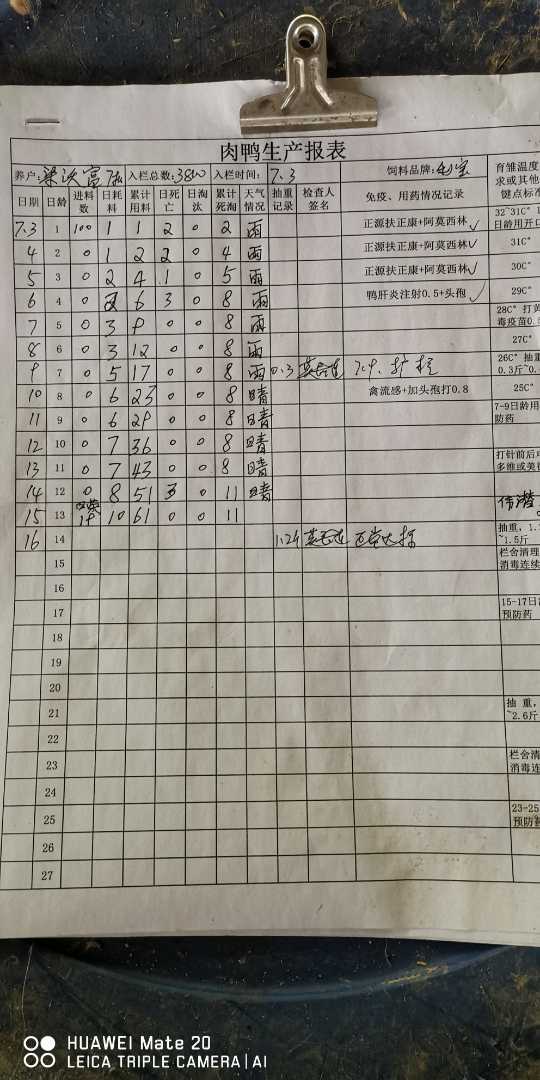 肉鸭生产报表
养户: 入栏总数:3800 入栏时间: 7.3 饲料品牌: 育雏温度
日期 日龄 进料数 日耗料 累计用料 日死亡 日淘汰 累计死淘 天气情况 抽重记录 检查人签名 免疫、用药情况记录 求或其他 键点标准
7.3 1 100 1 1 2 0 2 雨 正源扶正康+阿莫西林✓ 32~31C° 日龄用开口
4 2 0 1 2 2 0 4 雨 正源扶正康+阿莫西林✓ 31C°
5 3 0 2 4 1 0 5 雨 正源扶正康+阿莫西林✓ 30C°
6 4 0 2 6 3 0 8 雨 鸭肝炎注射0.5+头孢✓ 29C°
7 5 0 3 9 0 0 8 雨 28C° 打黄 毒疫苗0.
8 6 0 3 12 0 0 8 雨 27C°
9 7 0 5 17 0 0 8 雨 0.3 7.9. 扩栏 26C° 抽重 0.3斤~0.
10 8 0 6 23 0 0 8 晴 禽流感+加头孢打0.8 25C°
11 9 0 6 29 0 0 8 晴 7-9日龄用 防药
12 10 0 7 36 0 0 8 晴
13 11 0 7 43 0 0 8 晴 打针前后 多维或美
14 12 0 8 51 3 0 11 晴
15 13 10 61 0 0 11
16 14 1.24 正常 抽重，1. ~1.5斤
15 栏舍清理 消毒连续
16
17 15-17日 预防药
18
19
20
21 抽 重， ~2.6斤
22
23 栏舍清 消毒连
24
25 23-25 预防
26
27
HUAWEI Mate 20
LEICA TRIPLE CAMERA | AI